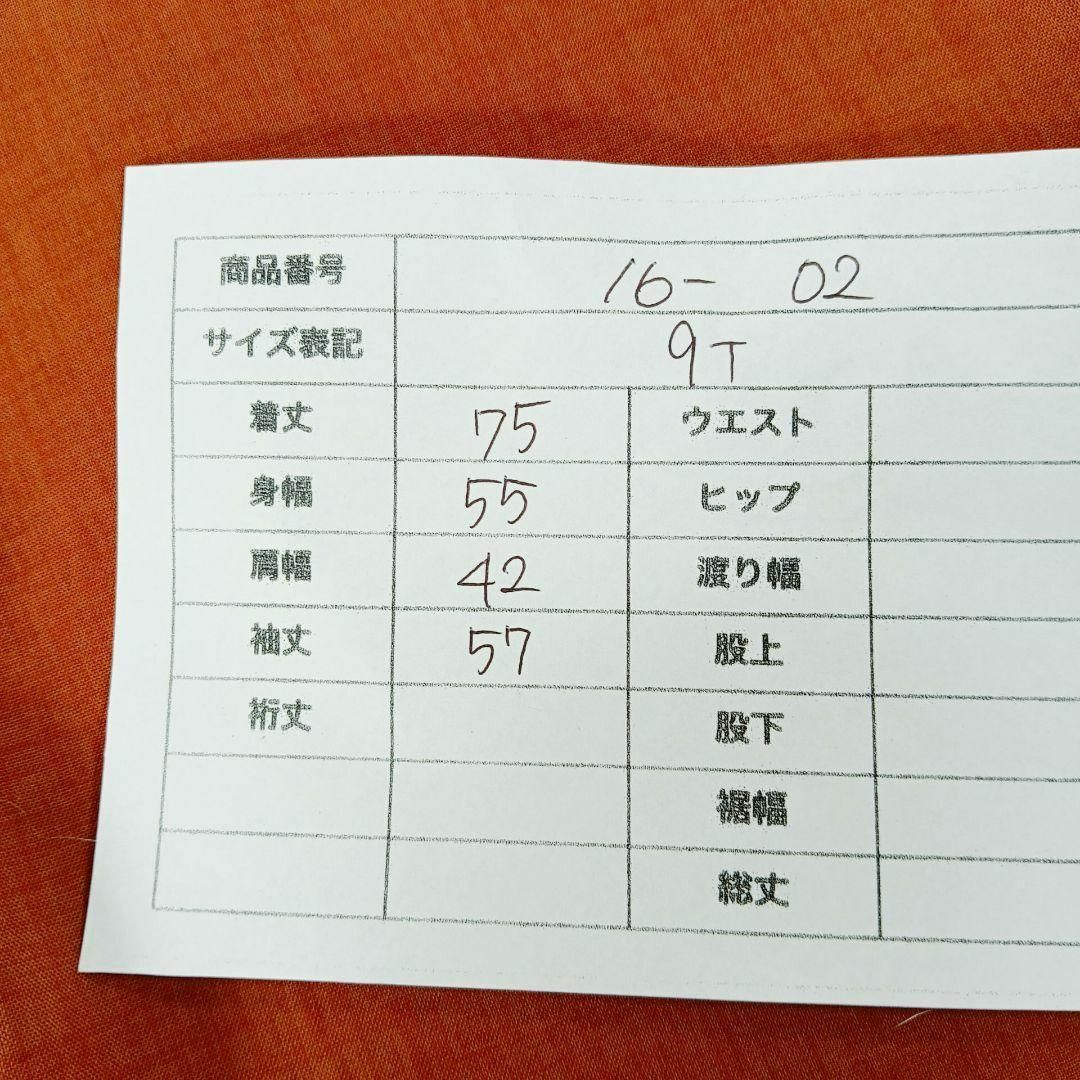 商品番号 16- 02
サイズ表記 9T
着丈 75 ウエスト
身幅 55 ヒップ
肩幅 42 渡り幅
袖丈 57 股上
裄丈 股下
裾幅
総丈